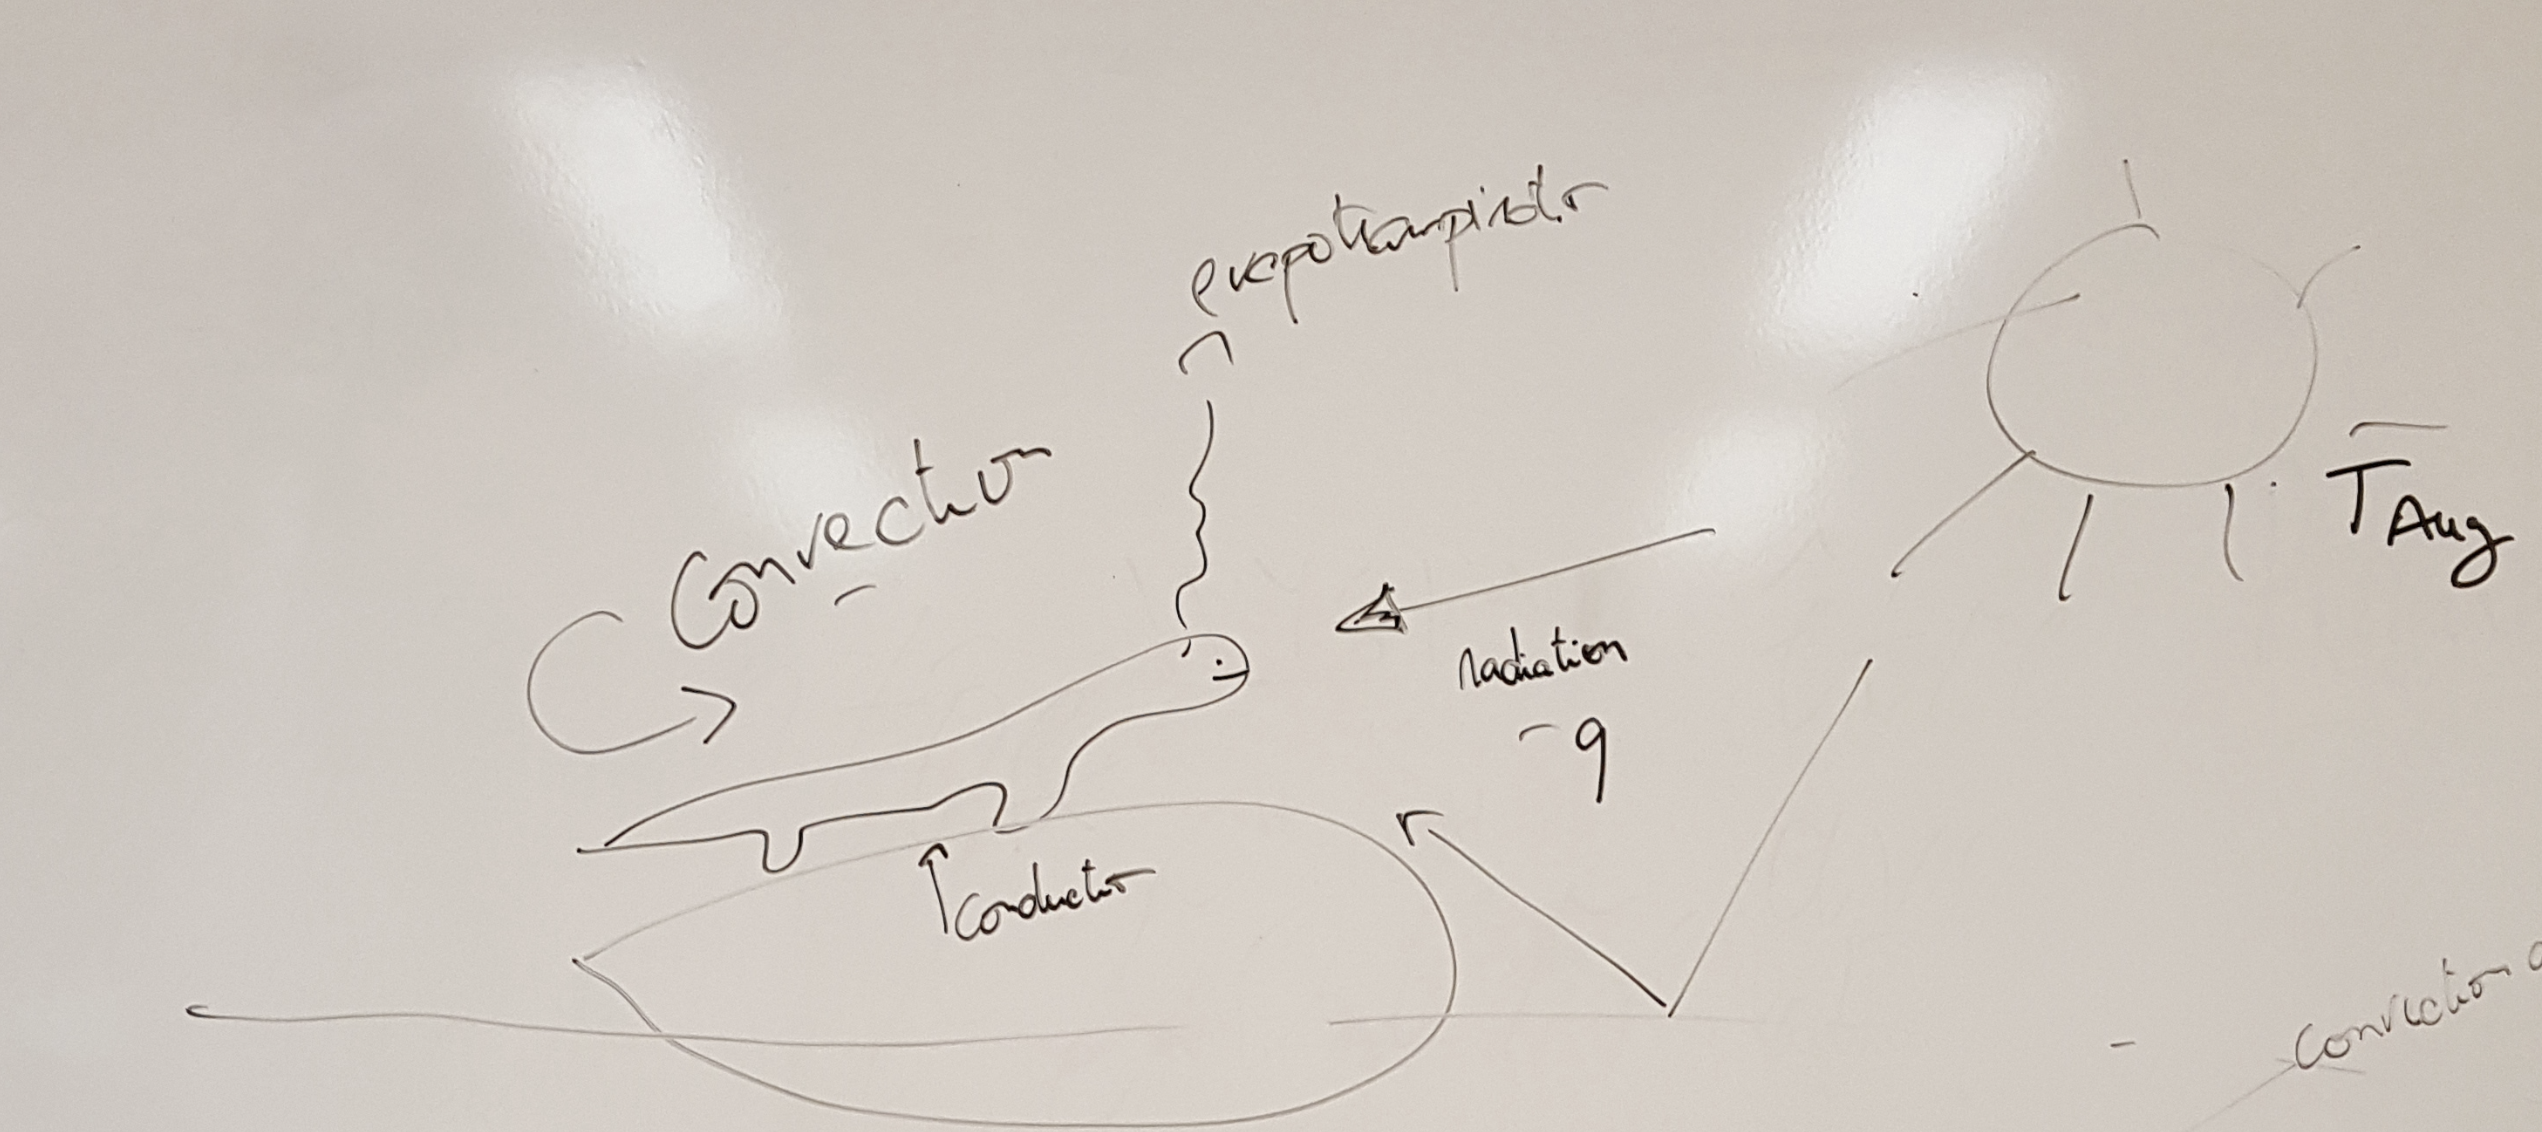 evapotranspiration
Convection
T Avg
radiation
q
conduction
convection